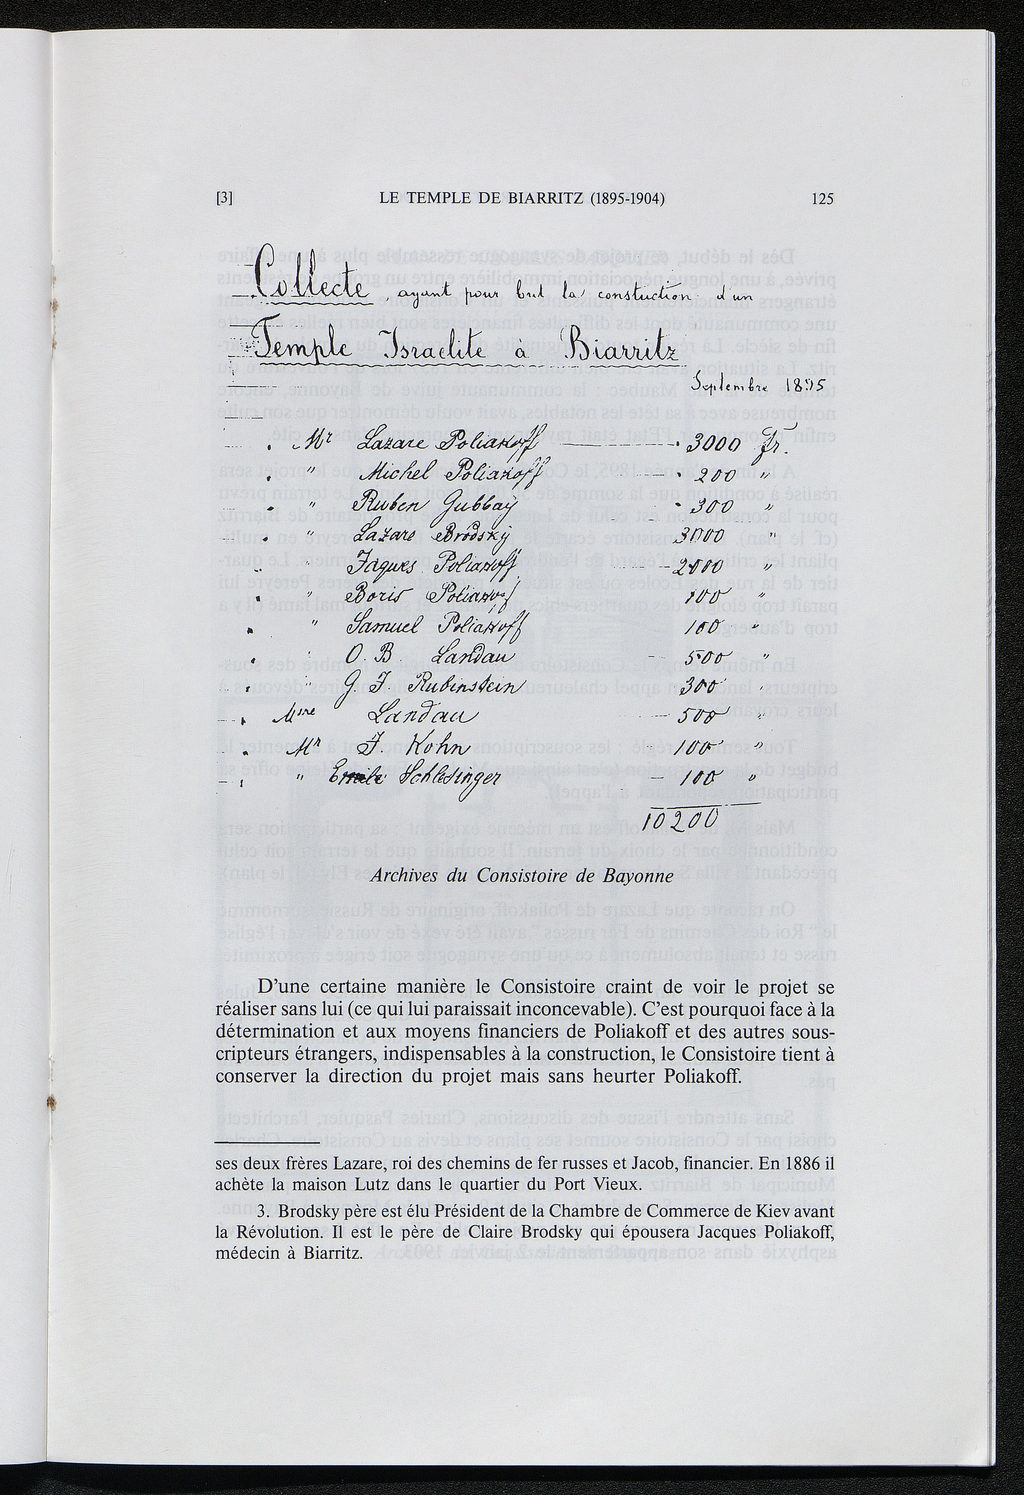 [3] LE TEMPLE DE BIARRITZ (1895-1904) 125
Collecte, ayant pour but la construction d'un
Temple Israelite à Biarritz
Septembre 1895
Mr Lazare Poliakoff 3000 Fr.
" Michel Poliakoff 200 "
" Ruben Gubbay 300 "
" Lazare Brodsky 3000 "
" Jaques Poliakoff 2000 "
" Boris Poliakoff 100 "
" Samuel Poliakoff 100 "
O. B. Landau 500 "
" J. J. Rubinstein 300
Mme Landau 500 "
Mr J. Kohn 100 "
" Emile Schlesinger 100 "
10200
Archives du Consistoire de Bayonne
D'une certaine manière le Consistoire craint de voir le projet se
réaliser sans lui (ce qui lui paraissait inconcevable). C'est pourquoi face à la
détermination et aux moyens financiers de Poliakoff et des autres sous-
cripteurs étrangers, indispensables à la construction, le Consistoire tient à
conserver la direction du projet mais sans heurter Poliakoff.
ses deux frères Lazare, roi des chemins de fer russes et Jacob, financier. En 1886 il
achète la maison Lutz dans le quartier du Port Vieux.
3. Brodsky père est élu Président de la Chambre de Commerce de Kiev avant
la Révolution. Il est le père de Claire Brodsky qui épousera Jacques Poliakoff,
médecin à Biarritz.